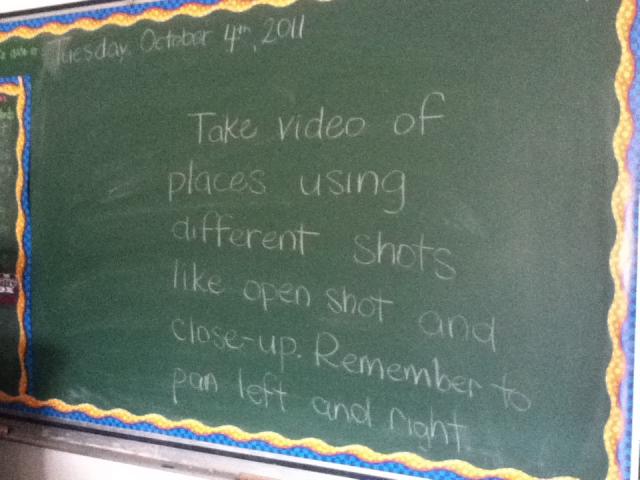 Tuesday, October 4th, 2011
Take video of
places using
different shots
like open shot and
close-up. Remember to
pan left and right.